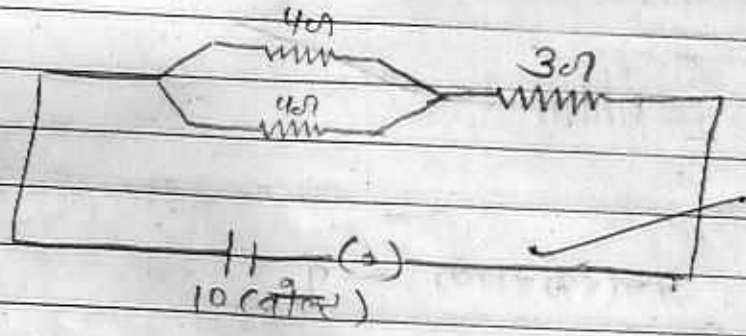 4Ω
3Ω
4Ω
10 (वोल्ट)